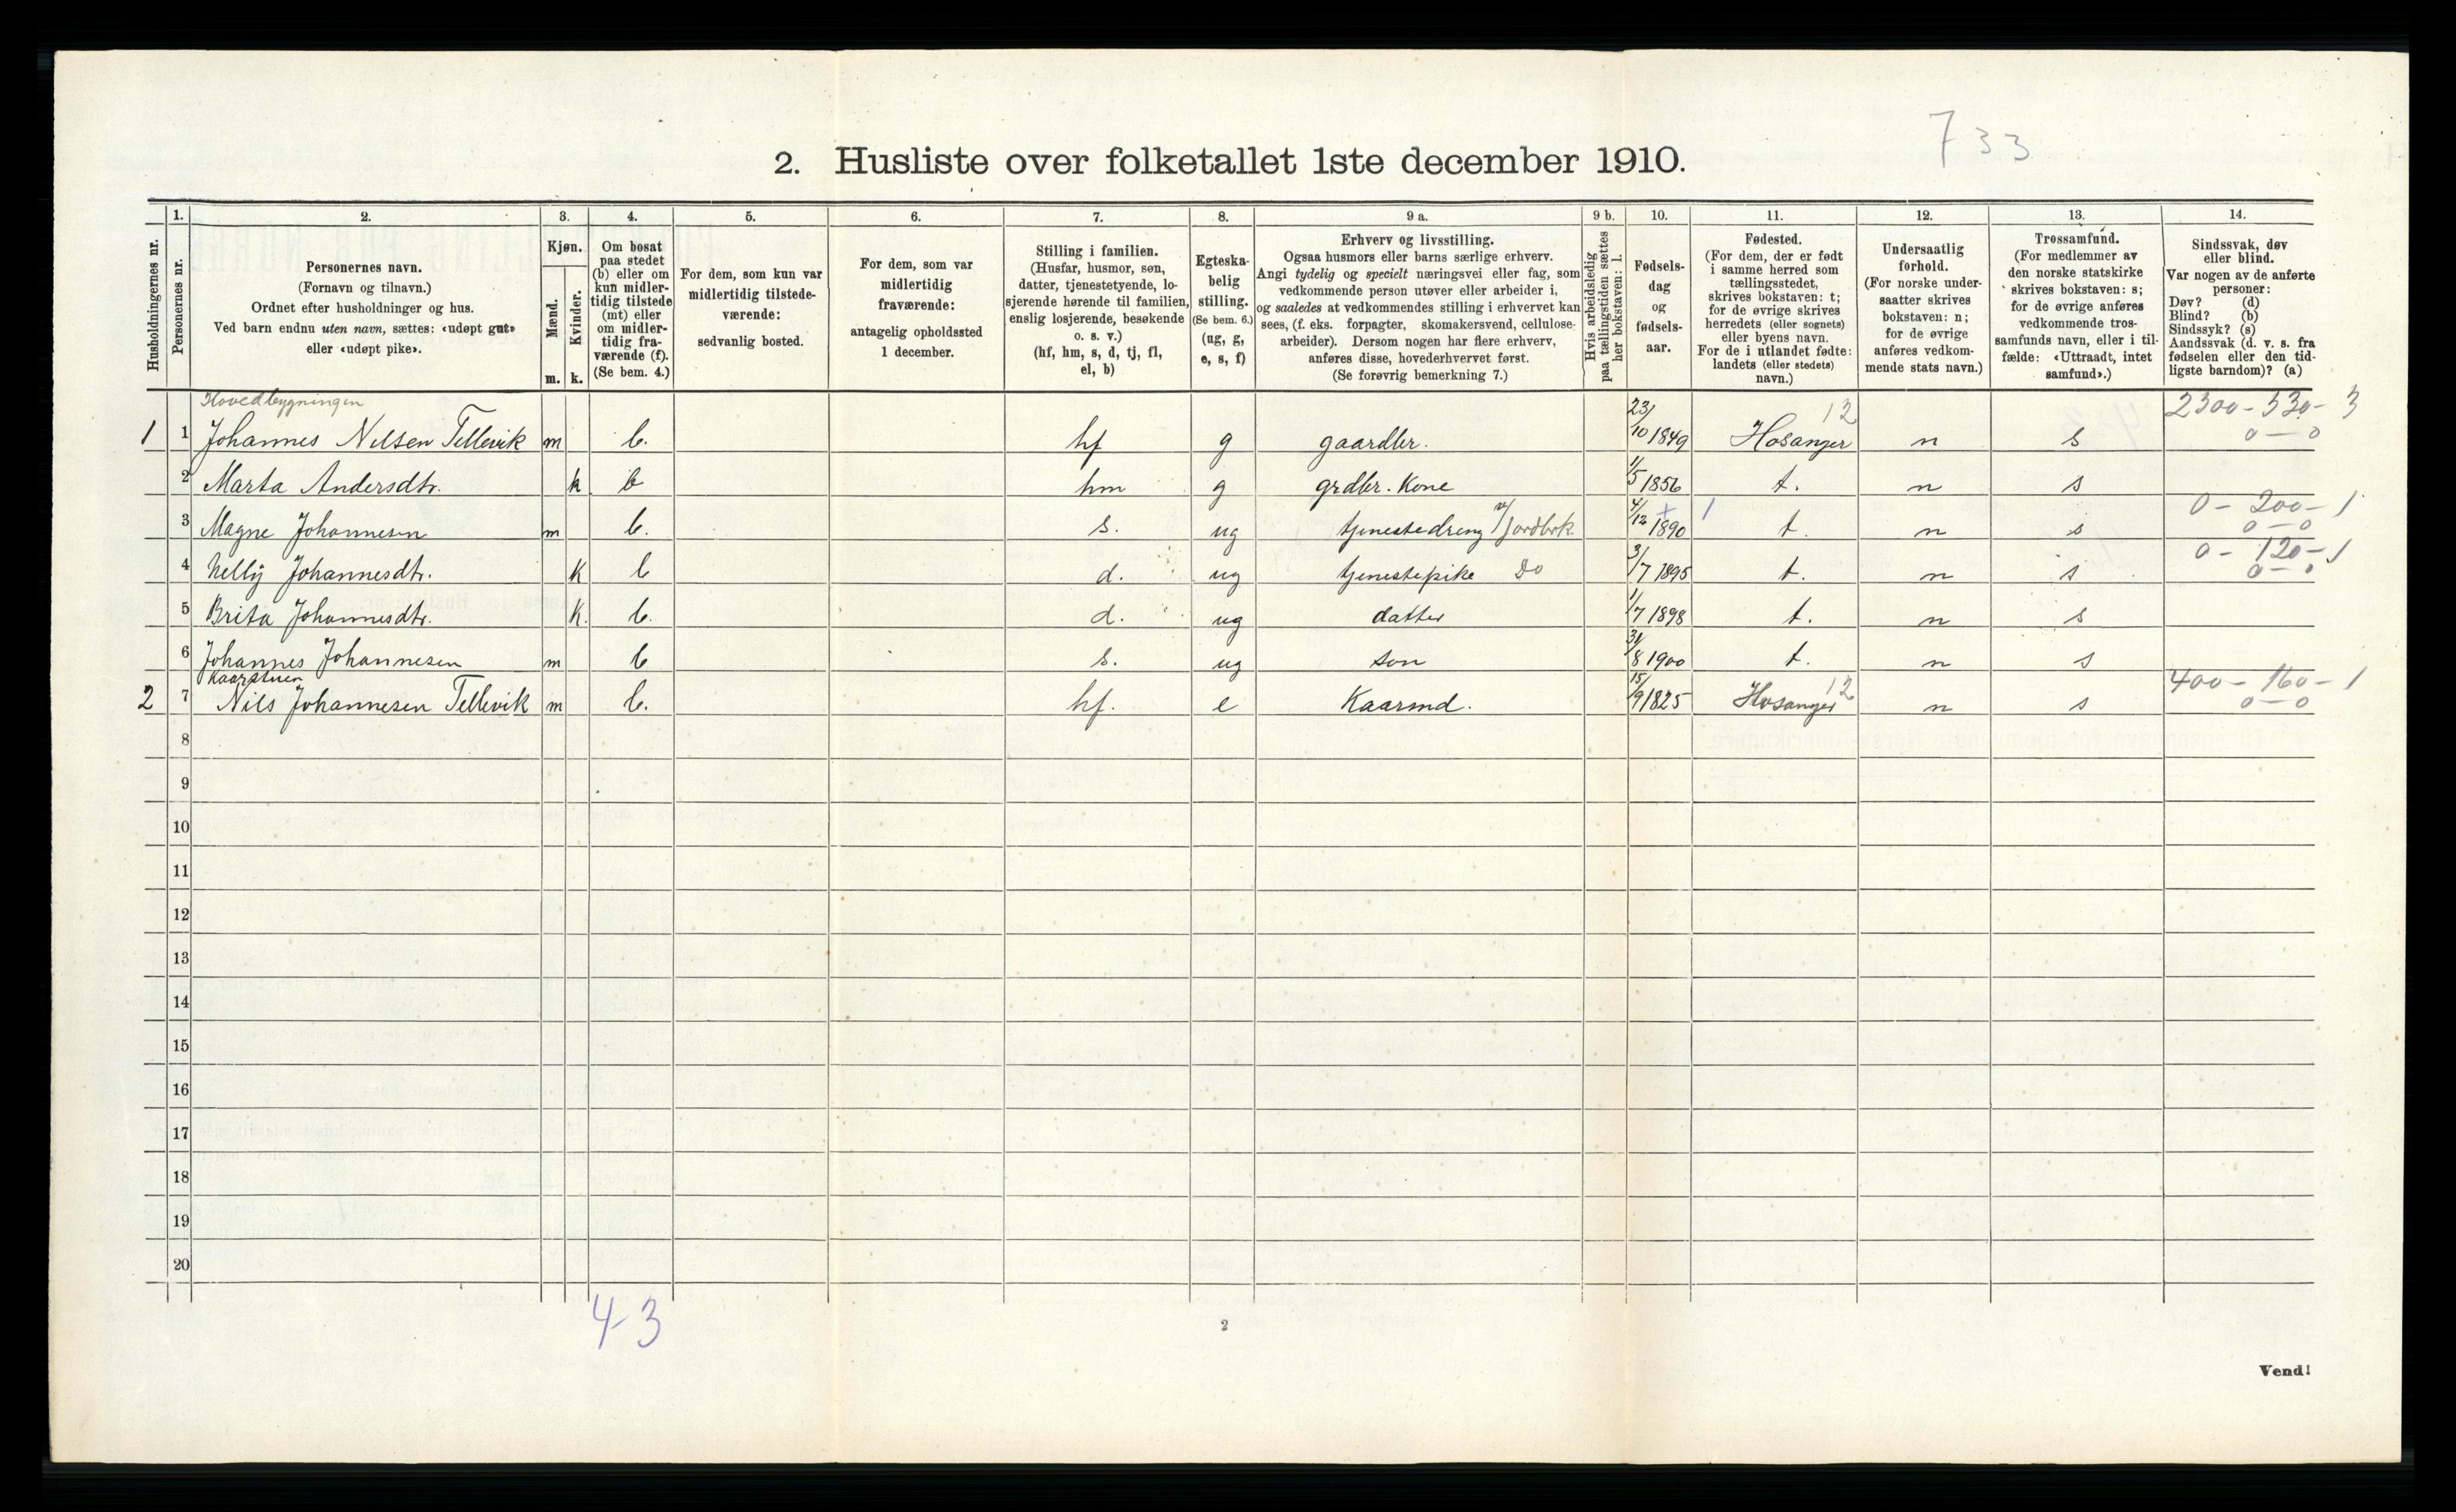 733
2. Husliste over folketallet 1ste december 1910.
Husholdningernes nr.
1.
Personernes nr.
2.
Personernes navn.
(Fornavn og tilnavn.)
Ordnet efter husholdninger og hus.
Ved barn endnu uten navn, sættes: «udøpt gut»
eller «udøpt pike».
3.
Kjøn.
Mænd.
Kvinder.
m. k.
4.
Om bosat
paa stedet
(b) eller om
kun midler-
tidig tilstede
(mt) eller
om midler-
tidig fra-
værende (f).
(Se bem. 4.)
5.
For dem, som kun var
midlertidig tilstede-
værende:
sedvanlig bosted.
6.
For dem, som var
midlertidig
fraværende:
antagelig opholdssted
1 december.
7.
Stilling i familien.
(Husfar, husmor, søn,
datter, tjenestetyende, lo-
sjerende hørende til familien,
enslig losjerende, besøkende
o. s. v.)
(hf, hm, s, d, tj, fl,
el, b)
8.
Egteska-
belig
stilling.
(Se bem. 6.)
(ug, g,
e, s, f)
9 a.
Erhverv og livsstilling.
Ogsaa husmors eller barns særlige erhverv.
Angi tydelig og specielt næringsvei eller fag, som
vedkommende person utøver eller arbeider i,
og saaledes at vedkommendes stilling i erhvervet kan
sees, (f. eks. forpagter, skomakersvend, cellulose-
arbeider). Dersom nogen har flere erhverv,
anføres disse, hovederhvervet først.
(Se forøvrig bemerkning 7.)
9 b.
Hvis arbeidsledig
paa tællingstiden sættes
her bokstaven: l.
10.
Fødsels-
dag
og
fødsels-
aar.
11.
Fødested.
(For dem, der er født
i samme herred som
tællingsstedet,
skrives bokstaven: t;
for de øvrige skrives
herredets (eller sognets)
eller byens navn.
For de i utlandet fødte:
landets (eller stedets)
navn.)
12.
Undersaatlig
forhold.
(For norske under-
saatter skrives
bokstaven: n;
for de øvrige
anføres vedkom-
mende stats navn.)
13.
Trossamfund.
(For medlemmer av
den norske statskirke
skrives bokstaven: s;
for de øvrige anføres
vedkommende tros-
samfunds navn, eller i til-
fælde: «Uttraadt, intet
samfund».)
14.
Sindssvak, døv
eller blind.
Var nogen av de anførte
personer:
Døv? (d)
Blind? (b)
Sindssyk? (s)
Aandssvak (d. v. s. fra
fødselen eller den tid-
ligste barndom)? (a)
Hovedbygningen 12 2300-530-3
1 1 Johannes Nilsen Tellevik m b. hf g gaardbr. 23/10 1849 Hosanger n s 0-0
2 Marta Andersdtr. k b hm g grdbr. Kone 1/5 1856 t. n s
0-200-1
3 Magne Johannesen m b. s. ug tjenestedreng v/ jordbrk. 4/12 1890 1 t. n s 0-0
0-120-1
4 Nelly Johannesdtr. K b d. ug tjenestepike Do 3/7 1895 t. n s 0-0
5 Brita Johannesdtr. K. b. d. ug datter 1/7 1898 t. n s
6 Johannes Johannesen m b s. ug son 31/8 1900 t. n s
Kaarstuen 12 400-160-1
2 7 Nils Johannesen Tellevik m b. hf. e Kaarmd. 15/9 1825 Hosanger n s 0-0
8
9
10
11
12
13
14
15
16
17
18
19
20
4-3
2
Vend!